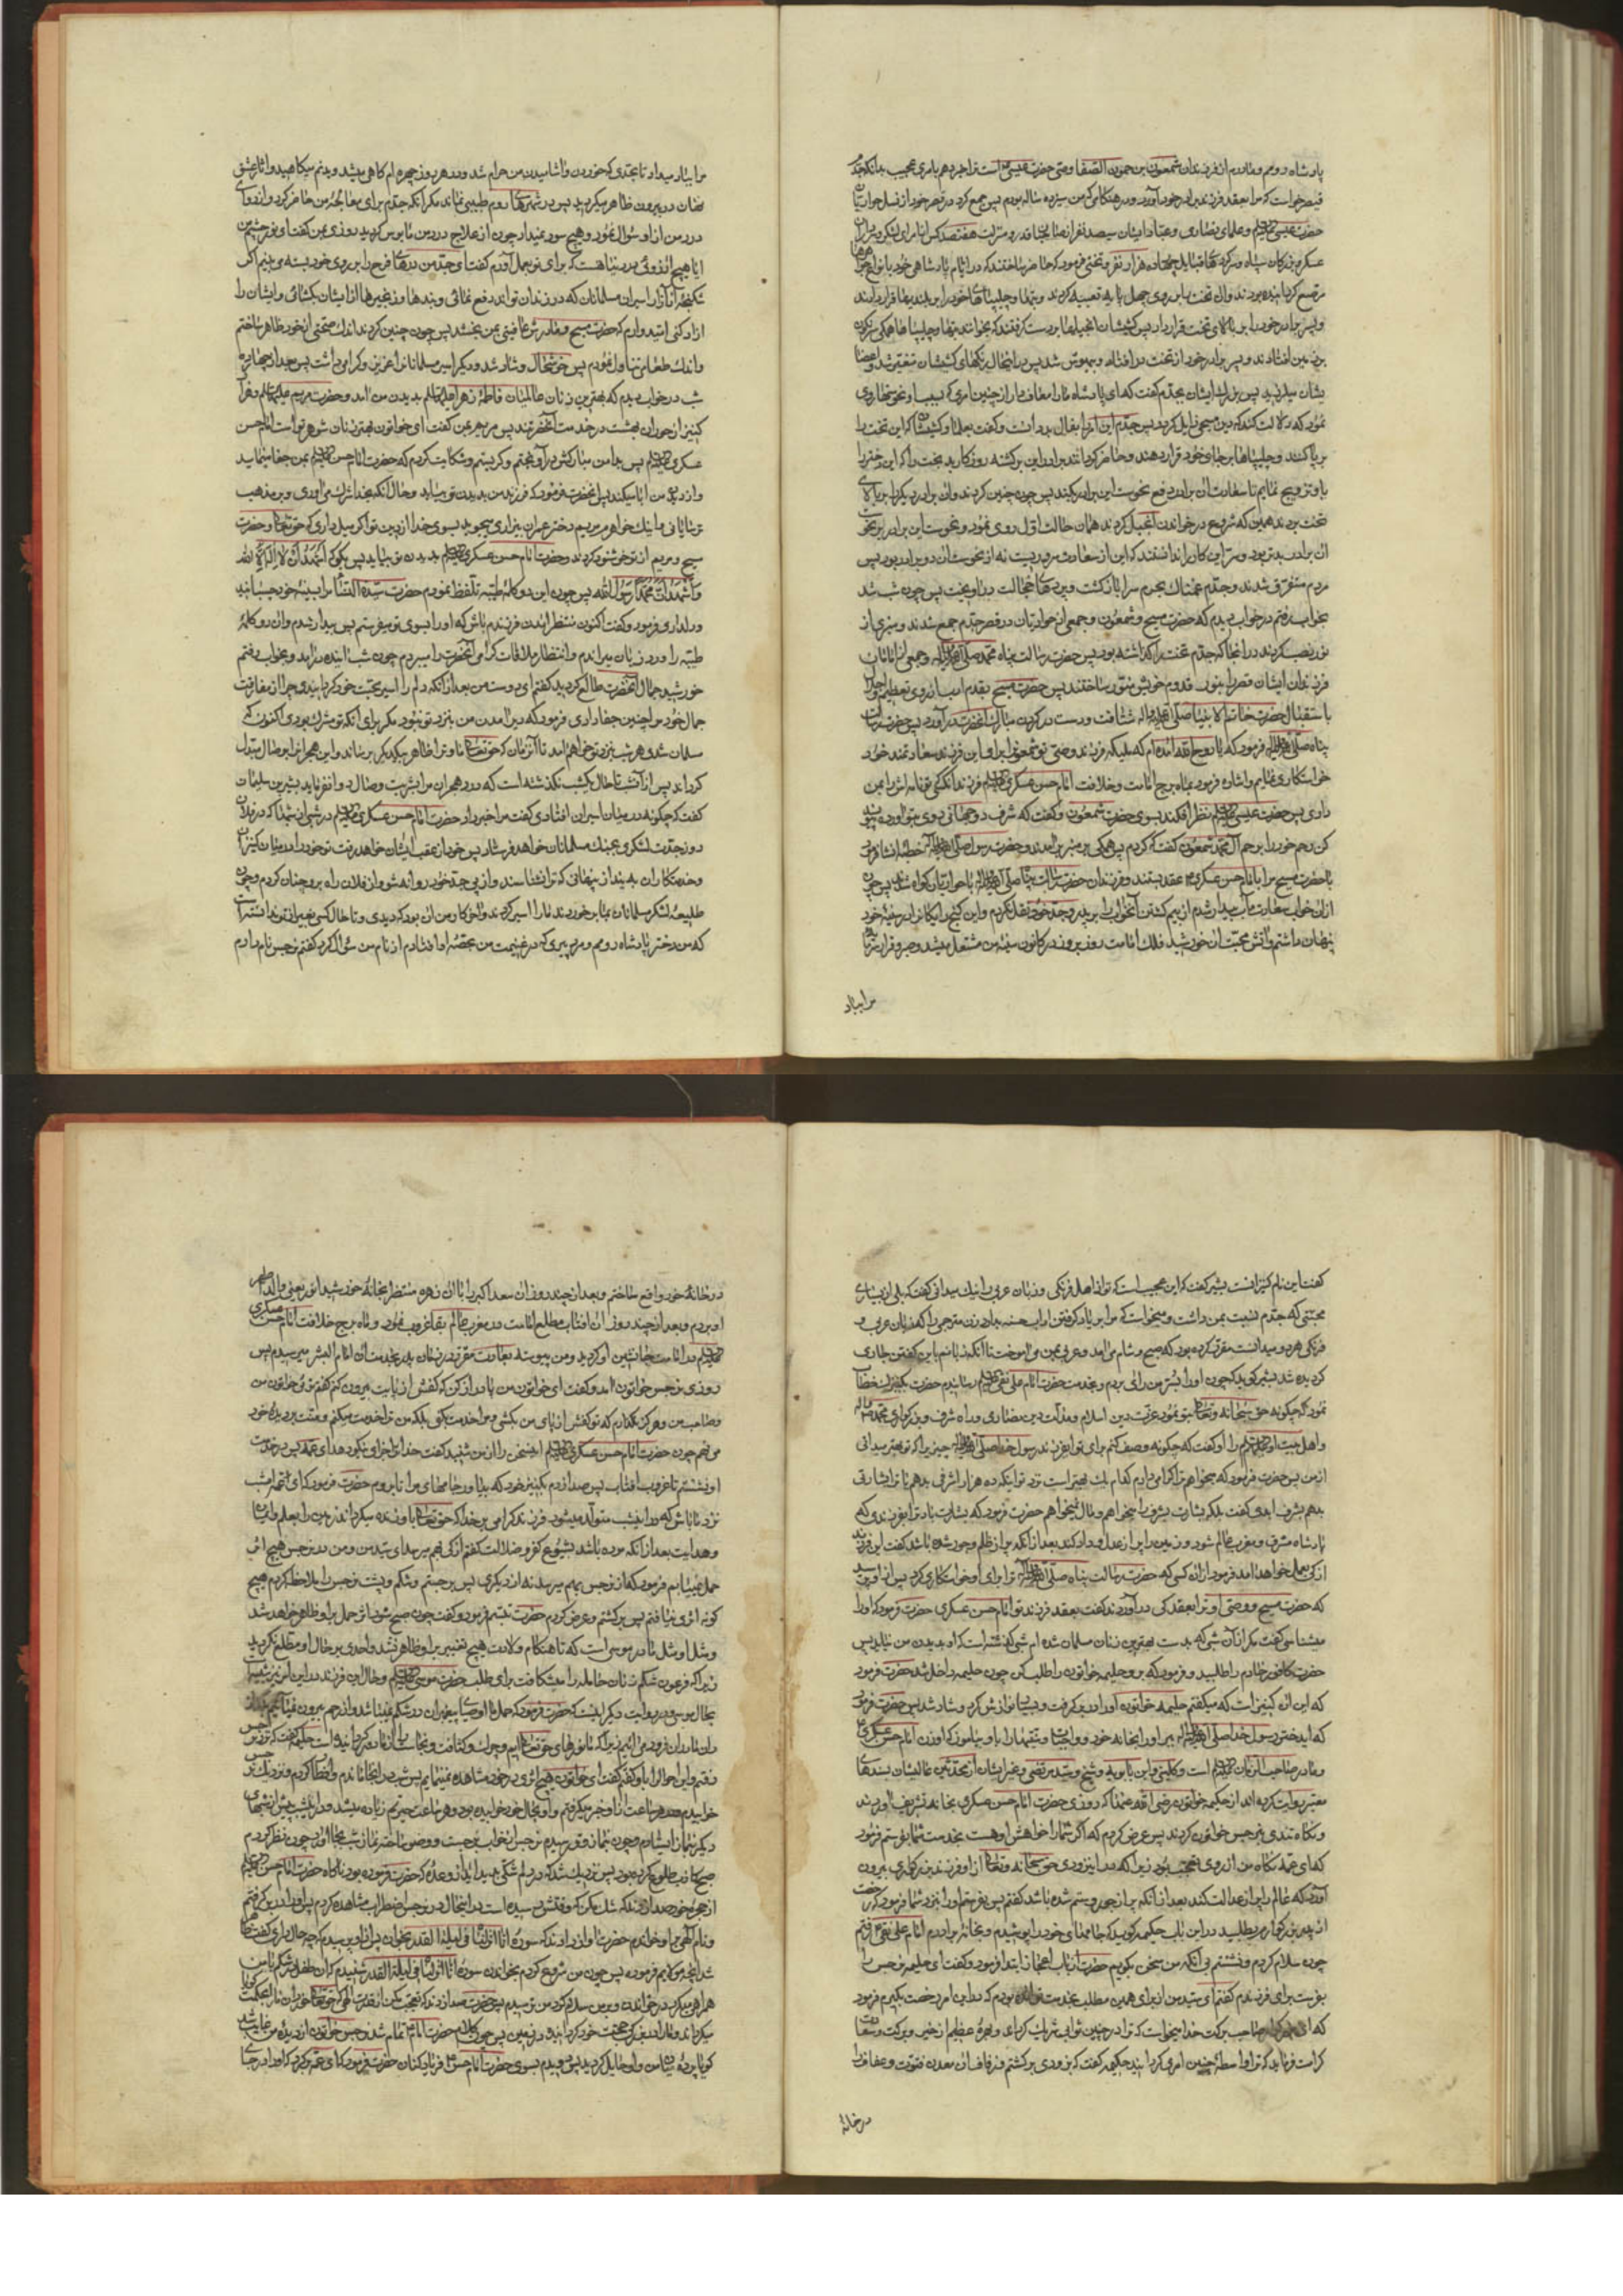 پادشاه روم و مادرم از فرزندان شمعون بن حمون الصفا وصی حضرت عیسی است ترا خبر دهم بامری عجیب بدانکه جدم
قیصر خواست که مرا بعقد فرزند برادر خود درآورد در هنگامی که من سیزده ساله بودم پس جمع کرد در قصر خود از نسل حواریان
حضرت عیسی و علمای نصاری و عباد ایشان سیصد نفر از صاحبان قدر و منزلت هفتصد کس و از امرای لشکر و سرداران
عسکر و بزرکان سپاه و سرکرده های قبایل چهار هزار نفر و تختی فرمود که حاضر ساختند که در ایام پادشاهی خود بانواع جواهر
مرصع کردانیده بود و آن تخت را بر روی چهل پایه تعبیه کردند و بتها و چلیپاهای خود را بر بلندیها قرار دادند
و پسر برادر خود را بر بالای تخت قرار داد پس کشیشان انجیلها را بر دست کرفتند که بخوانند بتها و چلیپاها همکی سرنکون
بر زمین افتادند و پسر برادر خود از تخت در افتاد و بیهوش شد پس در آنحال رنکهای کشیشان متغیر شد و اعضا
یشان بلرزید پس بزرک ایشان بجدم گفت که ای پادشاه ما را معاف دار از چنین امری که بسبب او نحوستها روی
نمود که دلالت میکند که دین مسیحی زایل کردد پس جدم این امر را بفال بد دانست و گفت بعلما و کشیشان که این تخت را
برپا کنند و چلیپاها را بجای خود قرار دهند و حاضر کردانند برادر این برکشته روزکار بدبخت را که این دختر را
باو تزویج نمایم تا سعادت آن برادر دفع نحوست این برادر بکند پس چون چنین کردند و آن برادر دیکر را بر بالای
تخت بردند همین که شروع در خواندن انجیل کردند همان حالت اول روی نمود و نحوست این برادر
آن برادر بود و سر این کار را ندانستند که این از سعادت سروریست نه از نحوست آن دو برادر پس
مردم متفرق شدند و جدم غمناک بحرم سرا بازکشت و پرده های خجالت در آویخت پس چون شب شد
بخواب رفتم در خواب دیدم که حضرت مسیح و شمعون و جمعی از حواریان در قصر جدم جمع شدند و منبری از
نور نصب کردند در آنجا که جدم تخت را کذاشته بود پس حضرت رسالت پناه محمد صلی الله علیه و آله و جمعی از امامان
فرزندان ایشان قصر را بنور قدوم خویش منور ساختند پس حضرت مسیح بقدم ادب از روی تعظیم و اجلال
باستقبال حضرت خاتم الانبیا صلی الله علیه و آله شتافت و دست در کردن مبارک آنحضرت در آورد پس حضرت رسالت
پناه صلی الله علیه و آله فرمود که یا روح الله آمده ام که ملیکه فرزند وصی تو شمعون را برای این فرزند سعادتمند خود
خواستکاری نمایم و اشاره فرمود بماه برج امامت و خلافت امام حسن عسکری فرزند آنکسی که تو نامه اش را بمن
دادی پس حضرت عیسی نظر افکند بسوی حضرت شمعون و گفت که شرف دوجهانی روی بتو آورده پیوند
کن رحم خود را برحم آل محمد شمعون گفت که کردم پس همکی بر منبر برآمدند و حضرت رسول صلی الله علیه و آله خطبه انشا فرمود
با حضرت مسیح مرا بامام حسن عسکری عقد بستند و فرزندان حضرت رسالت پناه صلی الله علیه و آله با حواریان کواه شدند پس چون
از آن خواب سعادت مآب بیدار شدم از بیم کشتن آنخواب را بپدر و جد خود نقل نکردم و این کنج رایکان را در سینه خود
پنهان داشتم و آتش محبت آن خورشید فلک امامت روز بروز در کانون سینه من مشتعل میشد و صبر و قرار
مرا بباد
مرا بباد میداد تا بحدی که خوردن و آشامیدن بر من حرام شد و در هر روز چهره ام کاهی میشد و بدنم میکاهید و آثار عشق
نهان در بیرون ظاهر میکردید پس در شهرهای روم طبیبی نماند مکر آنکه جدم برای معالجه من حاضر کرد و از دوای
درد من از او سؤال نمود و هیچ سود نمیداد چون از علاج درد من مأیوس کردید روزی بمن گفت ای نور چشم من
آیا هیچ آرزوئی در دنیا هست که برای تو بعمل آورم گفتم ای جد من درهای فرج را بر روی خود بسته می بینم اکر
شکنجه و آزار اسیران مسلمانان که در زندان تواند دفع نمائی و بندها و زنجیرها از ایشان بکشائی و ایشان را
آزاد کنی امیدوارم که حضرت مسیح و مادرش عافیتی بمن بخشد پس چون چنین کردند اندک صحتی از خود ظاهر ساختم
و اندک طعامی تناول نمودم پس خوشحال و شاد شد و دیکر اسیران مسلمانان را عزیز و کرامی داشت پس بعد از چهارده
شب در خواب دیدم که بهترین زنان عالمیان فاطمه زهرا بدیدن من آمد و حضرت مریم با هزار
کنیز از حوران بهشت در خدمت آنحضرتند پس مریم بمن گفت ای خواتون بهترین زنان مادر شوهر تو است امام حسن
عسکری پس بدامن مبارکش در آویختم و کریستم و شکایت کردم که حضرت امام حسن بمن جفا مینماید
و از دیدن من ابا میکند پس آنحضرت فرمود که فرزند من بدیدن تو نیاید و حال آنکه بخدا شرک می آوری و بر مذهب
ترسایانی و اینک خواهرم مریم دختر عمران بیزاری میجوید بسوی خدا از دین تو اکر میل داری که حق تعالی و حضرت
مسیح و مریم از تو خوشنود کردند و حضرت امام حسن عسکری بدیدن تو بیاید پس بکو که اشهد ان لا اله الا الله
و اشهد ان محمدا رسول الله پس چون این دو کلمه طیبه تلفظ نمودم حضرت سیدة النسا مرا بسینه خود چسبانید
و دلداری فرمود و گفت اکنون منتظر آمدن فرزندم باش که او را بسوی تو میفرستم پس بیدار شدم و آن دو کلمه
طیبه را ورد زبان میراندم و انتظار ملاقات کرامی آنحضرت را میبردم چون شب آینده درآمد و بخواب رفتم
خورشید جمال آنحضرت طالع کردید گفتم ای دوست من بعد از آنکه دلم را اسیر محبت خود کردانیدی چرا از مفارقت
جمال خود مرا چنین جفا دادی فرمود که دیر آمدن من بنزد تو نبود مکر برای آنکه تو مشرک بودی اکنون که
مسلمان شدی هر شب بنزد تو خواهم آمد تا آنزمان که حق تعالی ما و ترا بظاهر بیکدیکر برساند و این هجران را بوصال مبدل
کرداند پس از آنشب تا حال یکشب نکذشته است که درد هجران مرا بشربت وصال دوا نفرماید بشیر بن سلیمان
گفت که چکونه در میان اسیران افتادی گفت مرا خبر داد حضرت امام حسن عسکری در شبی از شبها که در فلان
روز جدت لشکری بجنک مسلمانان خواهد فرستاد پس خود از عقب ایشان خواهد رفت تو خود را در میان کنیزان
و خدمتکاران بینداز پنهانی که ترا نشناسند و از پی جد خود روانه شو و از فلان راه برو چنان کردم و چون
طلیعه لشکر مسلمانان بما برخوردند ما را اسیر کردند و آخر کار من آن بود که دیدی و تا حال کسی بغیر از تو ندانسته است
که من دختر پادشاه رومم و مرد پیری که در غنیمت من بحصه او افتادم از نام من سؤال کرد گفتم نرجس نام دارم
گفت این نام کنیزانست بشیر گفت که این عجیب است که تو از اهل فرنکی و زبان عربی را نیک میدانی گفت که بلی از بسیاری
محبتی که جدم نسبت بمن داشت و میخواست که مرا بر یاد کرفتن آداب حسنه بدارد زن مترجمی را که زبان عربی و
فرنکی هر دو میدانست مقرر کرده بود که صبح و شام می آمد و عربی بمن می آموخت تا آنکه زبانم باین کفتن جاری
کردیده شد بشیر کوید که چون او را بسر من رای بردم و بخدمت حضرت امام علی نقی رسانیدم حضرت بکنیزک خطاب
نمود که چکونه حق سبحانه و تعالی بتو نمود عزت دین اسلام و مذلت دین نصاری و شرف و بزرکواری محمد
و اهل بیت او را گفت که چکونه وصف کنم برای تو ای فرزند رسول خدا صلی الله علیه و آله چیزی را که تو بهتر میدانی
از من پس حضرت فرمود که میخواهم ترا کرامی دارم کدام یک بهتر است نزد تو اینکه ده هزار اشرفی بدهم یا ترا بشارتی
بدهم بشرف ابدی گفت بلکه بشارت بشرف را میخواهم و مال نمیخواهم حضرت فرمود که بشارت باد ترا بفرزندی که
پادشاه مشرق و مغرب عالم شود و زمین را پر از عدل و داد کند بعد از آنکه پر از ظلم و جور شده باشد گفت این فرزند
از کی بعمل خواهد آمد فرمود از آن کسی که حضرت رسالت پناه صلی الله علیه و آله ترا برای او خواستکاری کرد پس از او پرسید
که حضرت مسیح و وصی او ترا بعقد کی در آوردند گفت بعقد فرزند تو امام حسن عسکری حضرت فرمود که او را
میشناسی گفت مکر از آن شبی که بدست بهترین زنان مسلمان شده ام شبی کذشته است که او بدیدن من نیاید پس
حضرت کافور خادم را طلبید و فرمود که برو حلیمه خواتون را طلب کن چون حلیمه داخل شد حضرت فرمود
که این آن کنیز است که میکفتم حلیمه خواتون او را در بر کرفت و بسیار نوازش کرد و شاد شد پس حضرت فرمود
که ای دختر رسول خدا صلی الله علیه و آله ببر او را بخانه خود و واجبات و سنتها را باو بیاموز که او زن امام حسن عسکری
و مادر صاحب الزمان است و کلینی و ابن بابویه و شیخ و سید مرتضی و غیر ایشان از محدثین عالیشان بسندهای
معتبر روایت کرده اند از حکیمه خواتون رضی الله عنها که روزی حضرت امام حسن عسکری بخانه تشریف آوردند
و نکاه تندی بنرجس خواتون کردند پس عرض کردم که اکر شما را خواهش او هست بخدمت شما بفرستم فرمود
که ای عمه نکاه من از روی تعجب بود زیرا که در این زودی حق سبحانه و تعالی از او فرزند بزرکواری بیرون
آورد که عالم را پر از عدالت کند بعد از آنکه پر از جور و ستم شده باشد گفتم پس بفرستم او را بنزد شما فرمود که رخصت
از پدر بزرکوارم بطلبید در این باب حکیمه کوید که جامهای خود را پوشیدم و بخانه برادرم امام علی نقی رفتم
چون سلام کردم و نشستم بی آنکه من سخنی بکویم حضرت از باب اعجاز ابتدا فرمود و گفت ای حلیمه نرجس را
بفرست برای فرزندم گفتم ای سید من از برای همین مطلب بخدمت تو آمده بودم که در این امر رخصت بکیرم فرمود
که ای صاحب برکت خدا میخواست که ترا در چنین ثوابی شریک کرداند و بهره عظیم از خیر و برکت و سعادت
کرامت فرماید که ترا واسطه چنین امری کردانید حکیمه گفت که بزودی برکشتم و زفاف آن معدن فتوت و عفاف را
در خانه
در خانه خود واقع ساختم و بعد از چند روز آن سعد اکبر را با آن زهره منظر بخانه خورشید انور یعنی والد مطهر
او بردم و بعد از چند روزی آن آفتاب مطلع امامت در مغرب عالم بقا غروب نمود و ماه برج خلافت امام حسن عسکری
در امامت جانشین او کردید و من پیوسته بعادت مقرر زمان پدر بخدمت آن امام البشر میرسیدم پس
روزی نرجس خواتون آمد و گفت ای خواتون من پا دراز کن که کفش از پایت بیرون کنم گفتم توئی خواتون من
و صاحب من و هرکز نکذارم که تو کفش از پای من بکشی و مرا خدمت بکنی بلکه من ترا خدمت میکنم و منت بر دیده خود
می نهم چون حضرت امام حسن عسکری این سخن را از من شنید گفت خدا ترا جزای نیکو دهد ای عمه پس در خدمت
او نشستم تا غروب آفتاب پس صدا زدم بکنیز خود که بیاور جامهای مرا تا بروم حضرت فرمود که ای عمه امشب
نزد ما باش که در اینشب متولد میشود فرزند کرامی بر خدا که حق تعالی باو زنده میکرداند زمین را بعلم و ایمان
و هدایت بعد از آنکه مرده باشد بشیوع کفر و ضلالت گفتم از کی بهم میرسد ای سید من و من در نرجس هیچ اثر
حمل نمییابم فرمود که از نرجس بهم میرسد نه از دیکری پس برجستم و شکم و پشت نرجس را ملاحظه کردم هیچ
کونه اثری نیافتم پس برکشتم و عرض کردم حضرت تبسم فرمود و گفت چون صبح شود اثر حمل بر او ظاهر خواهد شد
و مثل او مثل مادر موسی است که تا هنکام ولادت هیچ تغییر بر او ظاهر نشد و احدی بر حال او مطلع نکردید
زیرا که فرعون شکم زنان حامله را میشکافت برای طلب حضرت موسی و حال این فرزند در این امر شبیه است
بحال موسی و در روایت دیکر اینست که حضرت فرمود که حمل ما اوصیای پیغمبران در شکم نمیباشد و از رحم بیرون نمیآئیم
خوابیدم و هر ساعت از او خبر میکرفتم و او بحال خود خوابیده بود و هر ساعت حیرتم زیاده میشد و در این شب بیش از شبهای
دیکر بنماز ایستادم و چون بنماز وتر رسیدم نرجس از خواب برجست و وضو ساخت و نماز شب بجا آورد چون نظر کردم
صبح کاذب طلوع کرده بود پس نزدیک شد که در دلم شکی پدید آید از وعده که حضرت فرموده بود ناکاه حضرت امام حسن
از حجره خود صدا زدند که شک مکن که وقتش رسیده است در اینحال در نرجس اضطراب مشاهده کردم پس او را در بر کرفتم
و نام الهی بر او خواندم حضرت آواز دادند که سوره انا انزلناه فی لیلة القدر بر او بخوان پس از او پرسیدم که چه حال داری گفت ظاهر
شد آنچه مولایم فرموده پس چون من شروع کردم بخواندن سوره انا انزلناه فی لیلة القدر شنیدم که آن طفل در شکم با من
همراهی میکرد در خواندن و بر من سلام کرد من ترسیدم پس حضرت صدا زدند که تعجب مکن از قدرت الهی که حق تعالی خوردان ما را بحکمت کویا
میکرداند و ما را در بزرکی حجت خود کردانیده در زمین پس چون کلام حضرت امام تمام شد نرجس خواتون از دیده من غایب شد
کویا پرده میان من و او حایل کردید پس دویدم بسوی حضرت امام حسن فریادکنان حضرت فرمود که ای عمه برکرد که او را در جای